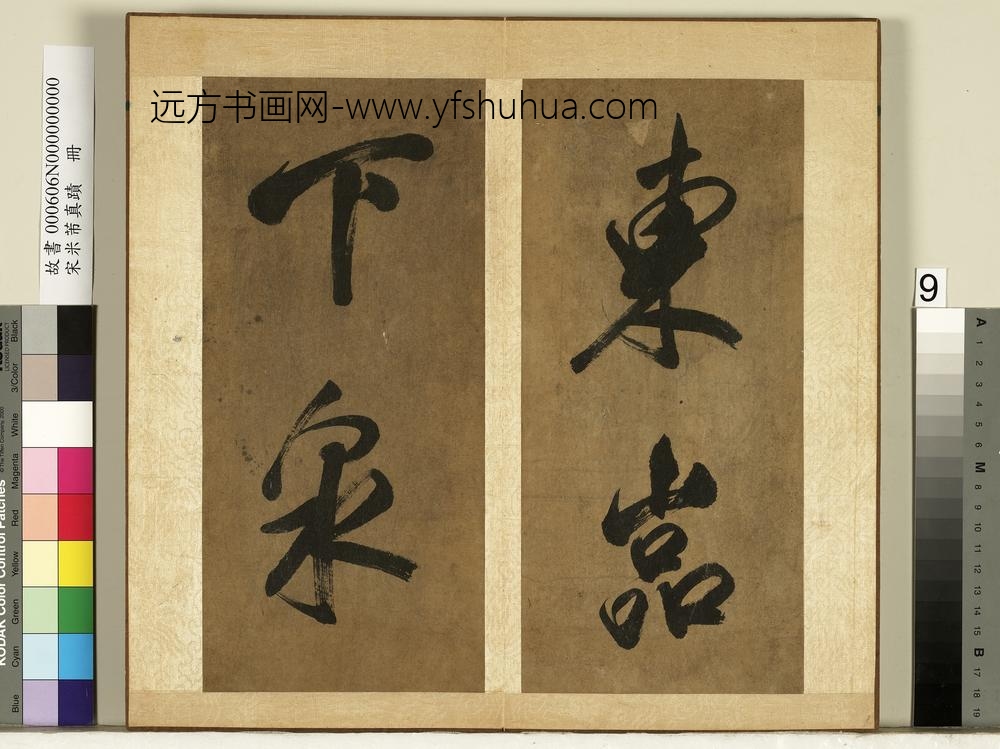 远方书画网-www.yfshuhua.com
東嵒
下泉
故書 000606N000000000
宋米芾真蹟 冊
KODAK Color Control Patches
LICENSED PRODUCT
© The Tiffen Company, 2000
Blue
Cyan
Green
Yellow
Red
Magenta
White
3/Color
Black
9
A
1
2
3
4
5
6
M
8
9
10
11
12
13
14
15
B
17
18
19